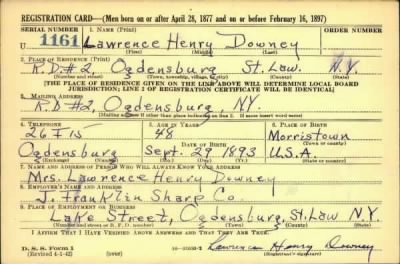 REGISTRATION CARD—(Men born on or after April 28, 1877 and on or before February 16, 1897)
SERIAL NUMBER 1. NAME (Print) ORDER NUMBER
U 1161 Lawrence Henry Downey
(First) (Middle) (Last)
2. PLACE OF RESIDENCE (Print)
R.D.#2, Ogdensburg St. Law. N.Y.
(Number and street) (Town, township, village, or city) (County) (State)
[THE PLACE OF RESIDENCE GIVEN ON THE LINE ABOVE WILL DETERMINE LOCAL BOARD
JURISDICTION; LINE 2 OF REGISTRATION CERTIFICATE WILL BE IDENTICAL]
3. MAILING ADDRESS
R.D #2, Ogdensburg, N.Y.
[Mailing address if other than place indicated on line 2. If same insert word same]
4. TELEPHONE 5. AGE IN YEARS 6. PLACE OF BIRTH
26F15 48 Morristown
DATE OF BIRTH (Town or county)
Ogdensburg Sept. 29, 1893 U.S.A.
(Exchange) (Number) (Mo.) (Day) (Yr.) (State or country)
7. NAME AND ADDRESS OF PERSON WHO WILL ALWAYS KNOW YOUR ADDRESS
Mrs. Lawrence Henry Downey
8. EMPLOYER'S NAME AND ADDRESS
J. Franklin Sharp Co.
9. PLACE OF EMPLOYMENT OR BUSINESS
Lake Street, Ogdensburg, St. Law N.Y.
(Number and street or R. F. D. number) (Town) (County) (State)
I AFFIRM THAT I HAVE VERIFIED ABOVE ANSWERS AND THAT THEY ARE TRUE.
D. S. S. Form 1
(Revised 4-1-42) (over) Lawrence Henry Downey
(Registrant's signature)